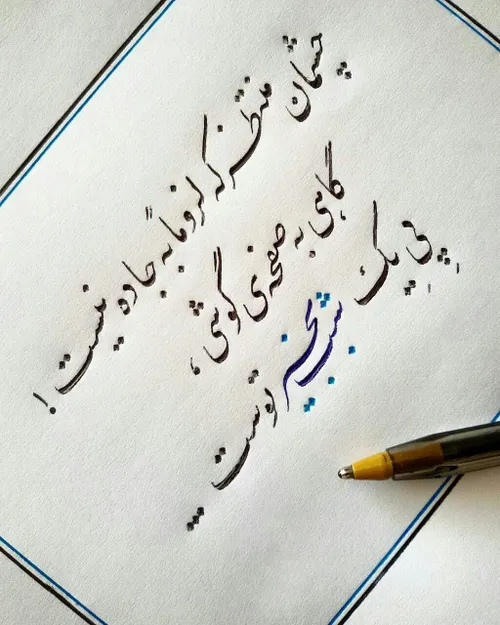 چشمان منتظر که لزوماً به جاده نیست !
گاهی به صفحه‌ی گوشی ،
پی یک شب بخیر توست ...